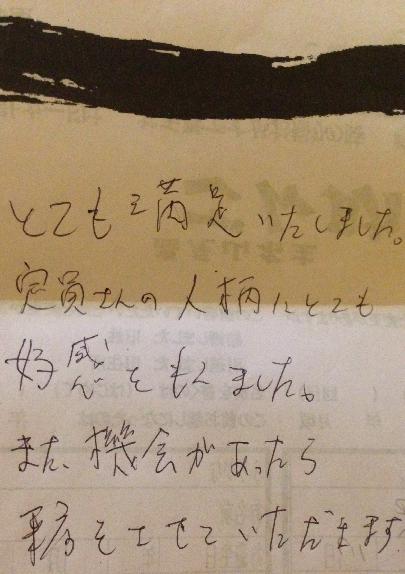 とても満足いたしました。
定員さんの人柄にとても
好感をもてました。
また、機会があったら
させていただきます